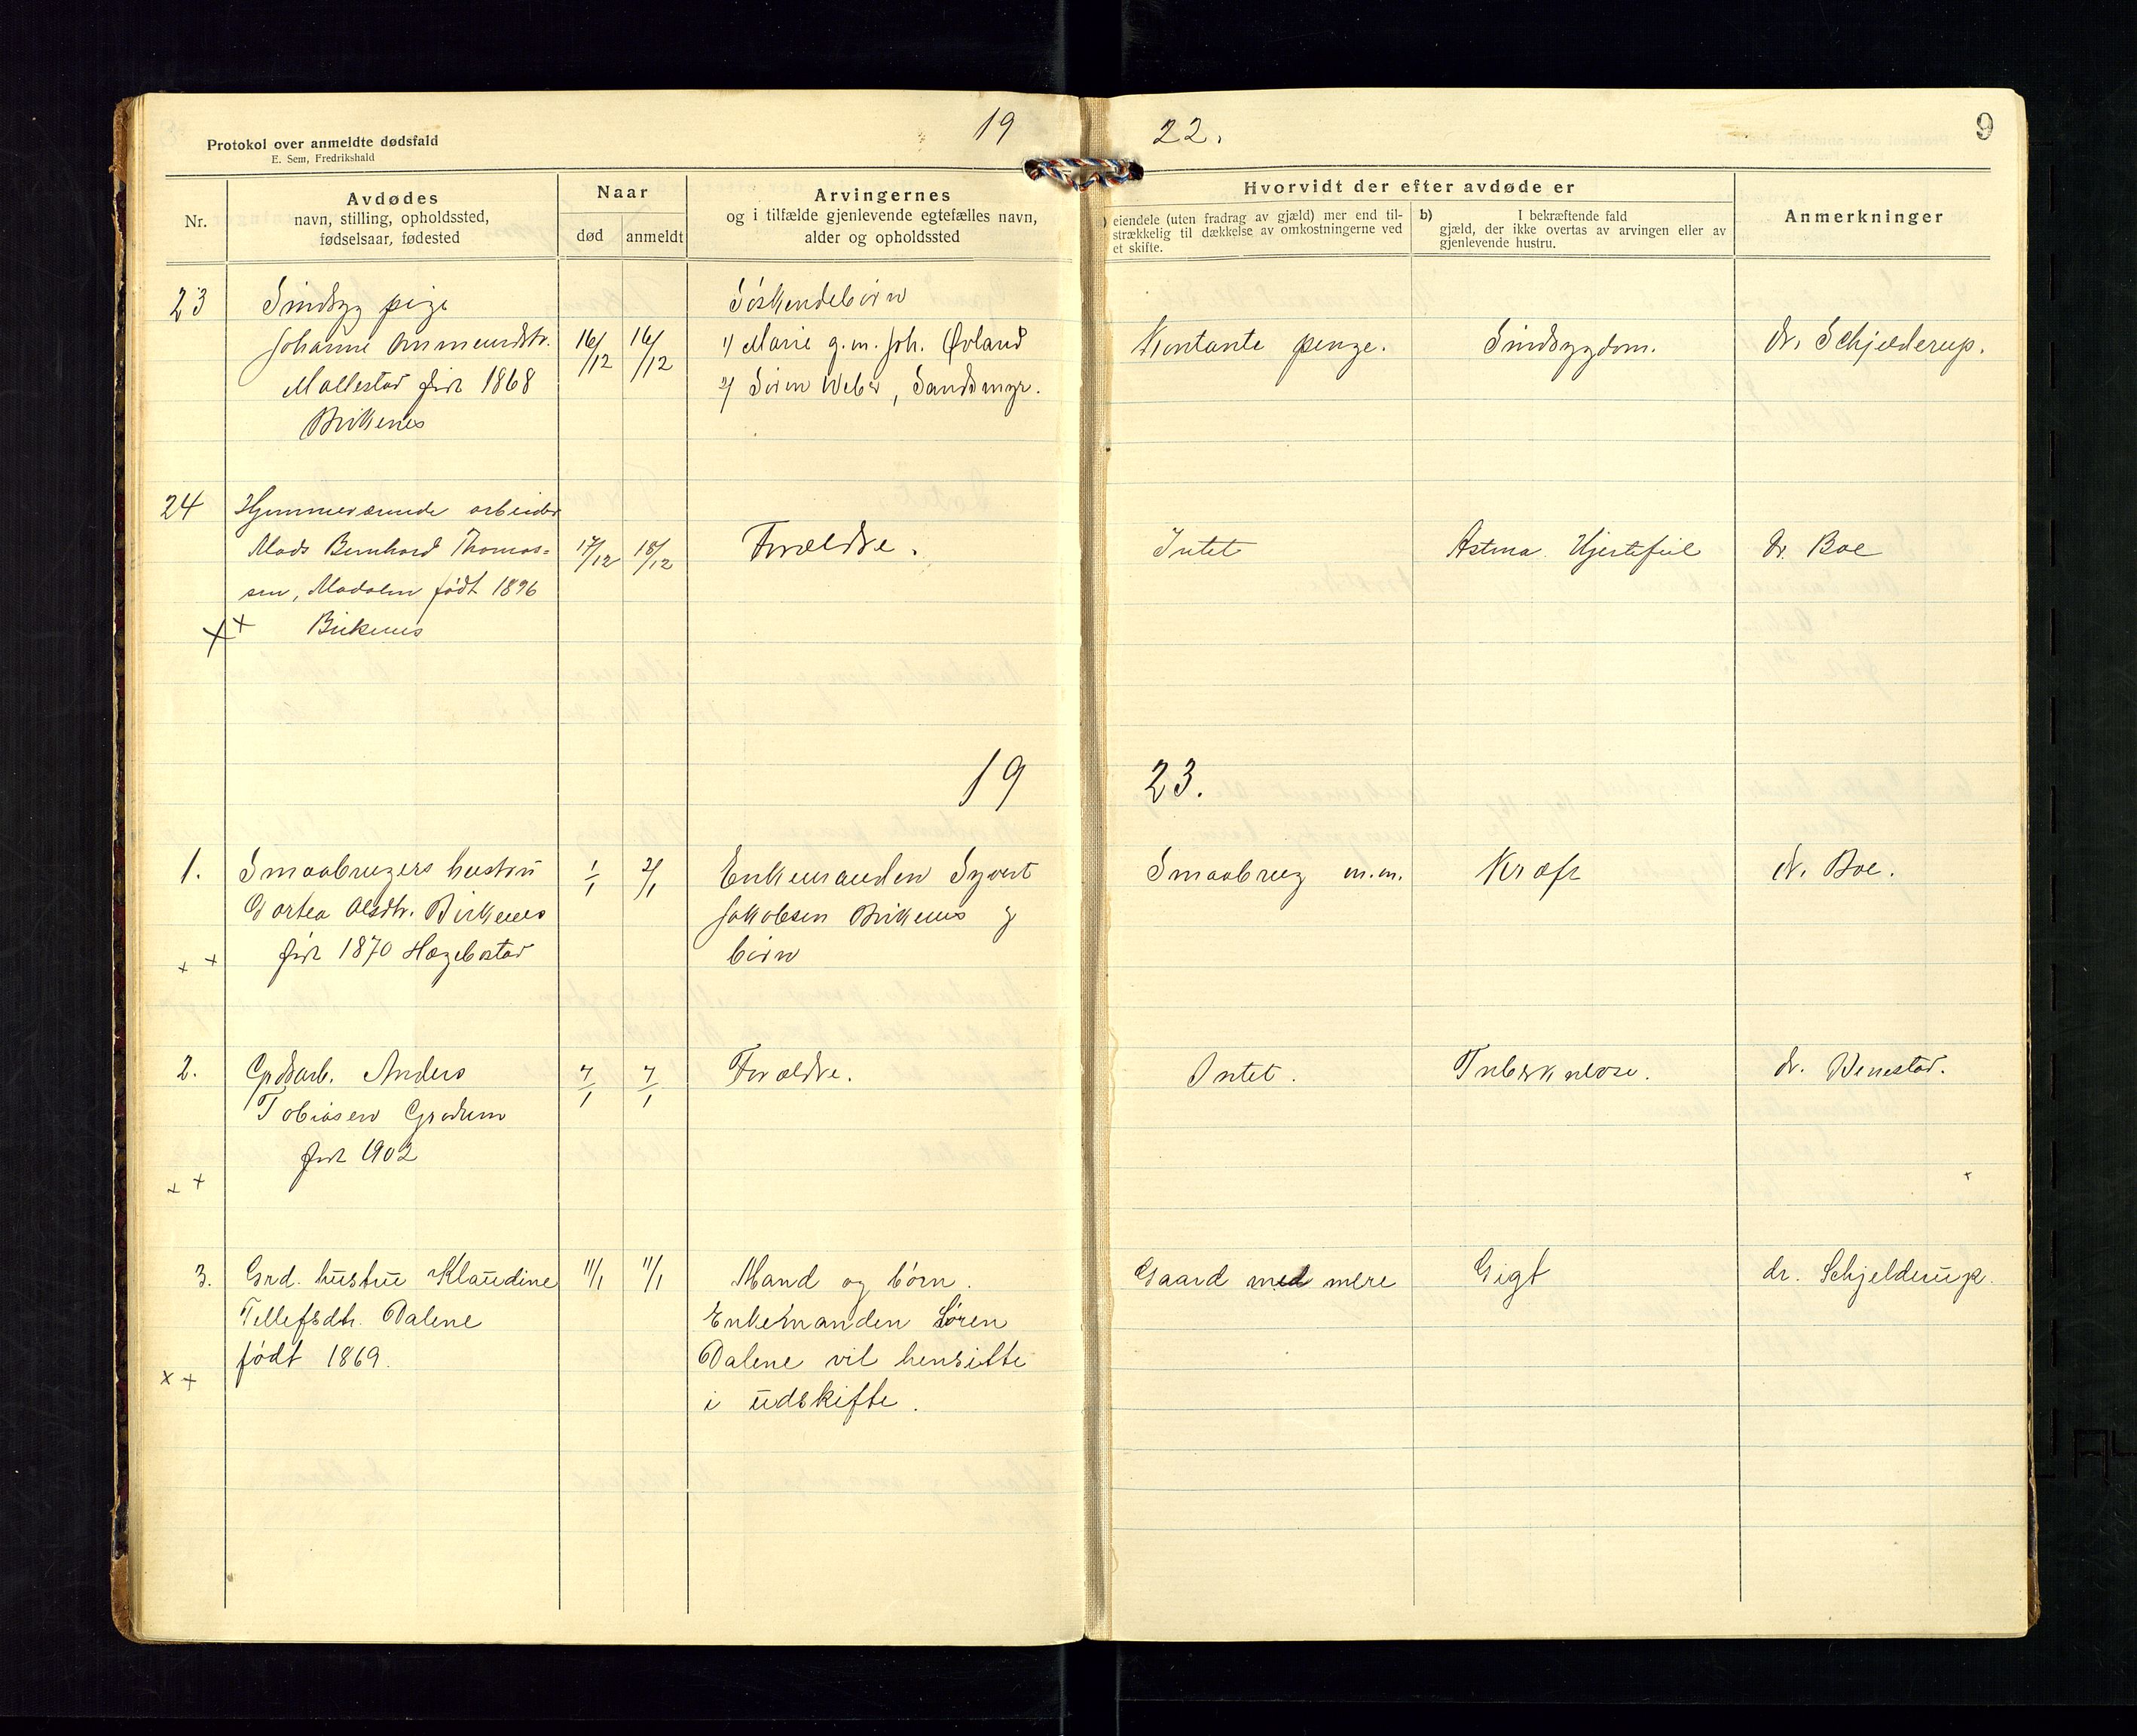 Protokol over anmeldte dødsfald
E. Sem, Fredrikshald
19 22.
9
Nr.
Avdødes
navn, stilling, opholdssted,
fødselsaar, fødested
Naar
død anmeldt
Arvingernes
og i tilfælde gjenlevende egtefælles navn,
alder og opholdssted
Hvorvidt der efter avdøde er
) eiendele (uten fradrag av gjæld) mer end til-
strækkelig til dækkelse av omkostningerne ved
et skifte.
b) I bekræftende fald
gjæld, der ikke overtas av arvingen eller av
gjenlevende hustru.
Anmerkninger
23 Sindsyg pige
Johanne Ommundstr.
Mollestad født 1868
Birkenes
16/12 16/12
Søskendebørn
1) Marie g.m. Joh. Øvland
2) Søren Weber, Sandsmyr.
Kontante penge.
Sindsygdom.
dr. Schjelderup.
24 Hjemmeværende arbeider
Mads Bernhard Thomas=
sen, Madalen født 1896
++ Birkenes
17/12 18/12
Forældre.
Intet
Astma. Hjertefeil
dr. Boe
19 23.
1. Smaabrugers hustru
Dortea Olsdtr. Birkenes
++ født 1870 Hægebostad
1/1 2/1
Enkemanden Syvert
Jakobsen Birkenes og
børn
Smaabrug m.m.
Kræft
dr. Boe.
2. Grdsarb. Anders
Tobiasen Grødum
født 1902
++
7/1 7/1
Forældre.
Intet.
Tuberkulose.
dr. Wenestad.
3. Grd. hustru Klaudine
Tellefsdtr. Dalene
født 1869.
x+
11/1 11/1
Mand og børn.
Enkemanden Søren
Dalene vil hensitte
i udskifte.
Gaard med mere
Gigt
dr. Schjelderup.